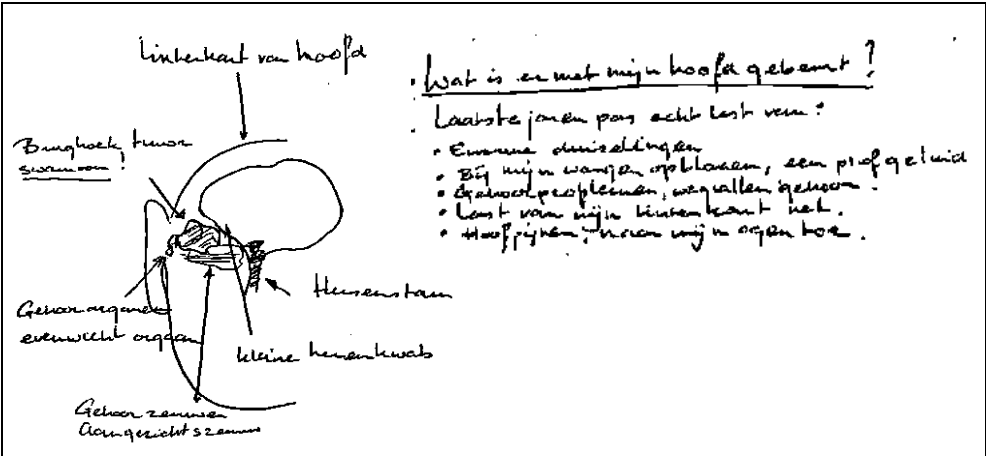 Linkerkant van hoofd
Brughoek tumor
swannoom!
Gehoororganen
evenwicht orgaan
Gehoor zenuwen
Aangezichtszenuw
kleine hersenkwab
Hersenstam
• Wat is er met mijn hoofd gebeurt?
Laatste jaren pas echt last van:
• Enorme duizelingen
• Bij mijn wangen opblazen, een plofgeluid
• Gehoorproplemen, wegvallen gehoor.
• Last van mijn linkerkant
• Hoofpijnen, naar mijn ogen toe.